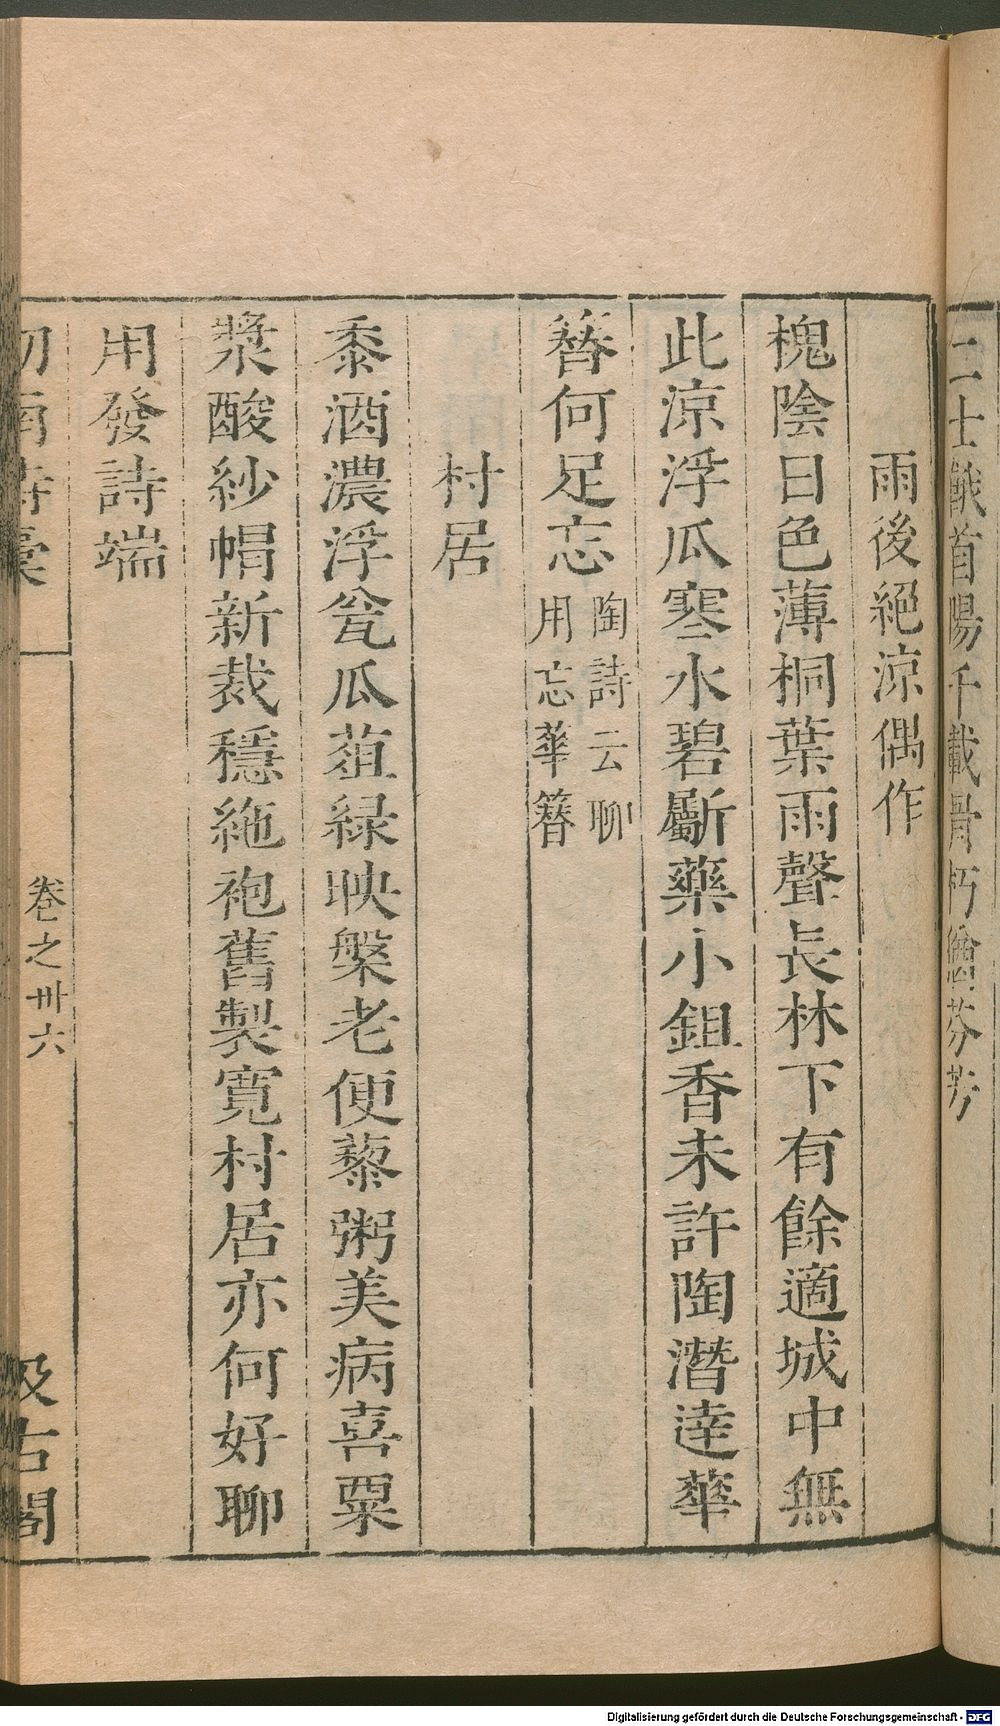 二士餓首陽千載骨朽譫芬芳
雨後絕涼偶作
槐陰日色薄桐葉雨聲長林下有餘適城中無
此涼浮瓜寒水碧斸藥小鉏香未許陶潛達華
簪何足忘陶詩云聊
用忘華簪
村居
黍酒濃浮瓮瓜葅緑映槃老便藜粥美病喜粟
漿酸紗帽新裁穩絁袍舊製寛村居亦何好聊
用發詩端
劎南詩稾 卷之卅六 汲古閣
Digitalisierung gefördert durch die Deutsche Forschungsgemeinschaft - DFG